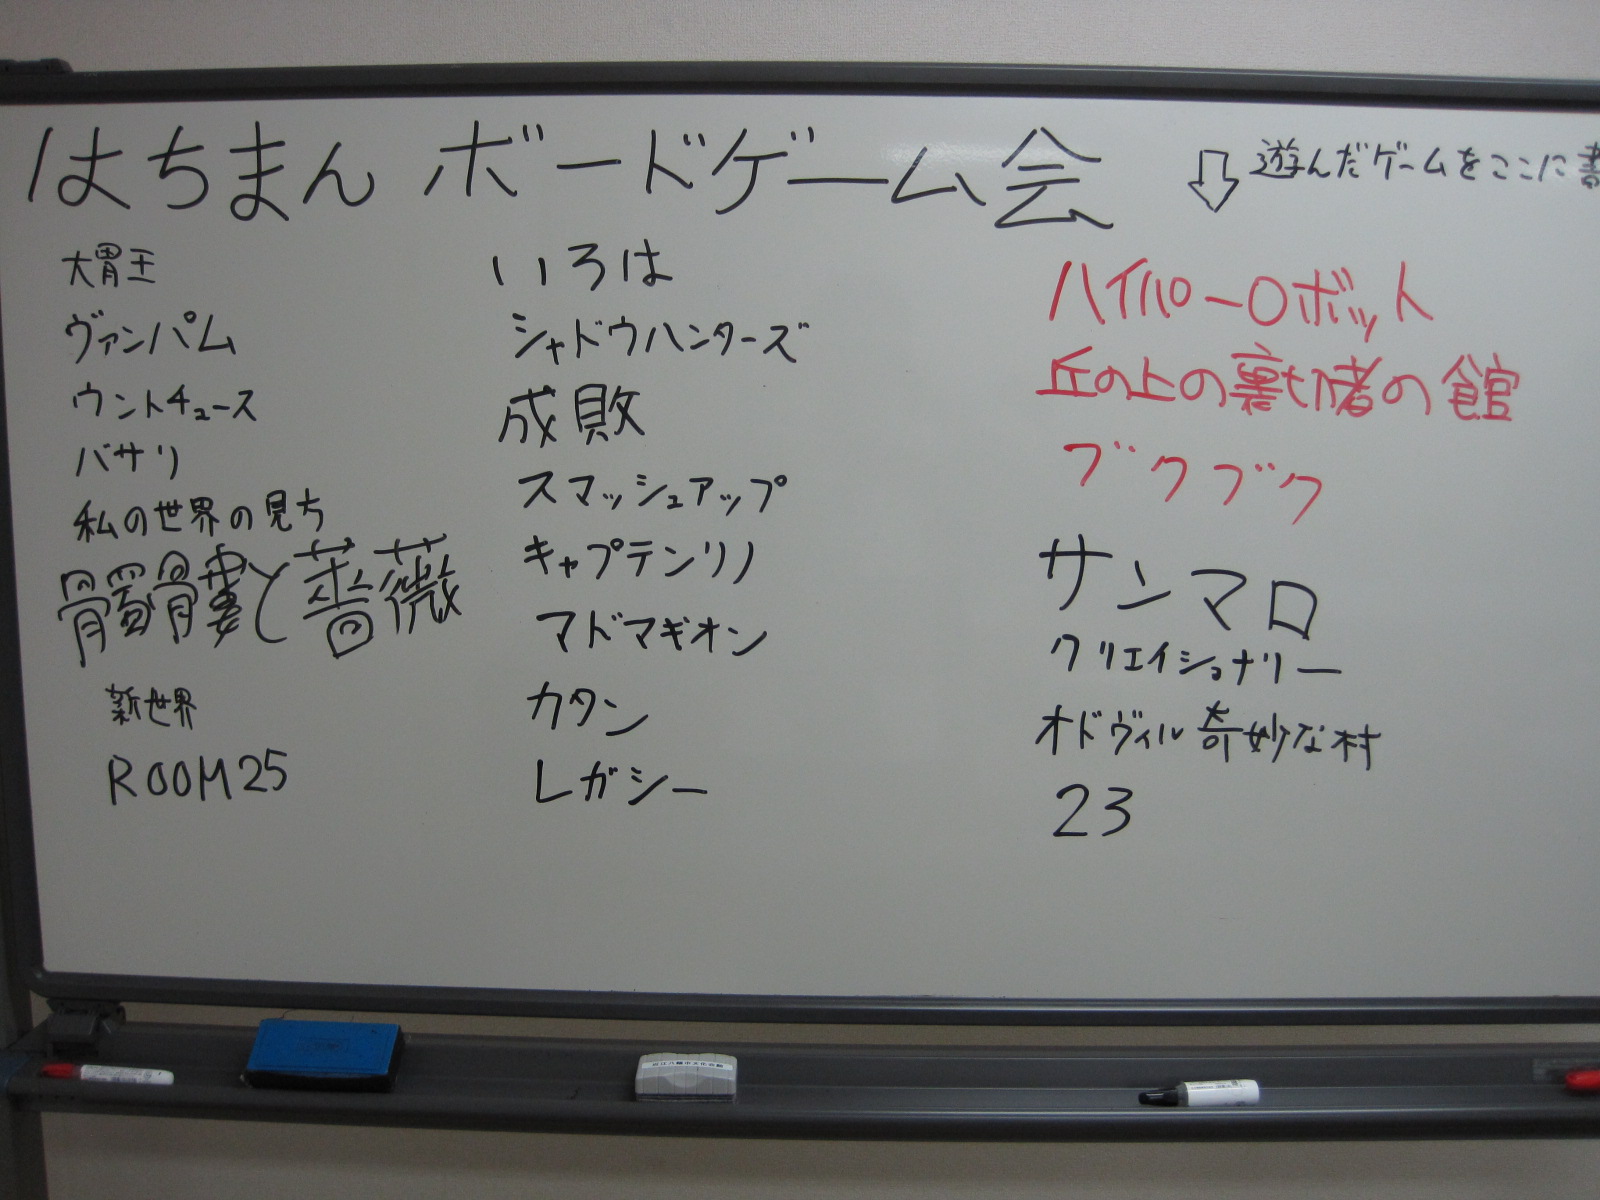 はちまん ボードゲーム会
⇩遊んだゲームをここに書
大胃王
ヴァンパム
ウントチュース
バサリ
私の世界の見方
髑髏と薔薇
新世界
ROOM25
いろは
シャドウハンターズ
成敗
スマッシュアップ
キャプテンリノ
マドマギオン
カタン
レガシー
ハイパーロボット
丘の上の裏切り者の館
ブクブク
サンマロ
クリエイショナリー
オドヴィル 奇妙な村
23
近江八幡市文化会館